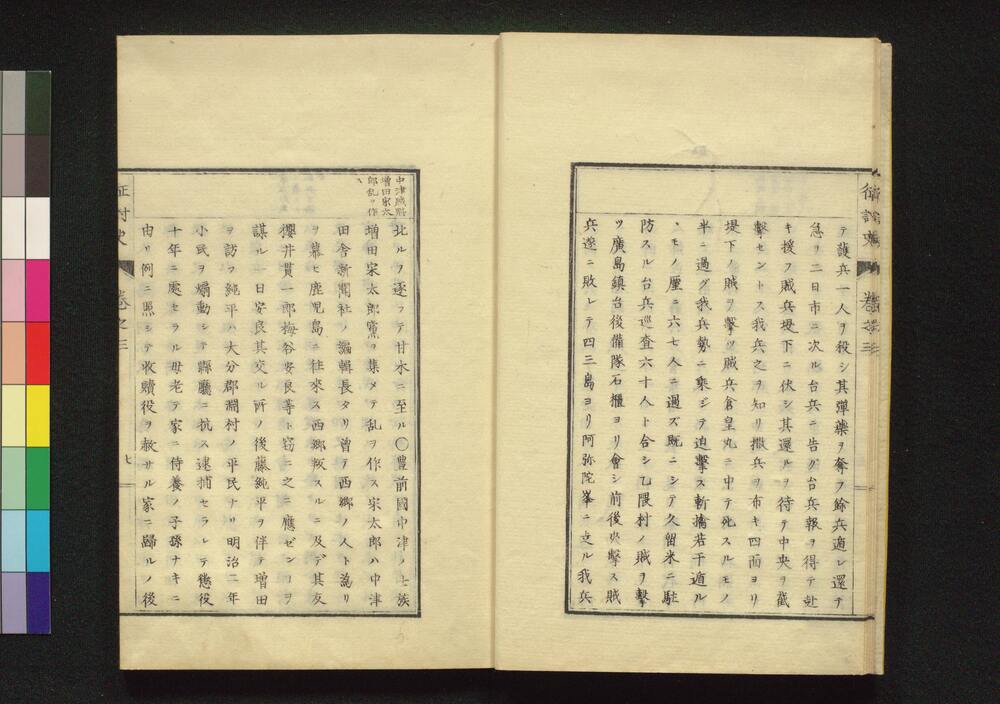 征討史 卷之三
テ護兵一人ヲ殺シ其彈藥ヲ奪フ餘兵遁レ還テ
急ヲ二日市ニ次ル台兵ニ告グ台兵報ヲ得テ赴
キ援フ賊兵堤下ニ伏シ其還ルヲ待テ中央ヲ截
擊セントス我兵之ヲ知リ撒兵ヲ布キ四面ヨリ
堤下ノ賊ヲ擊ツ賊兵倉皇丸ニ中テ死スルモノ
半ニ過グ我兵勢ニ乘ジテ迫擊ス斬擒若干遁ル
ヽモノ厪ニ六七人ニ過ズ既ニシテ久留米ニ駐
防スル台兵巡査六十人ト合シ乙隈村ノ賊ヲ擊
ツ廣島鎮台後備隊石櫃ヨリ會シ前後夾擊ス賊
兵遂ニ敗レテ四三島ヨリ阿弥陀峯ニ走ル我兵
中津賊魁
増田宋太
郎乱ヲ作
ス
北ルヲ逐フテ甘水ニ至ル〇豊前國中津ノ士族
増田宋太郎黨ヲ集メテ乱ヲ作ス宋太郎ハ中津
田舎新聞社ノ編輯長タリ曽テ西郷ノ人ト為リ
ヲ慕ヒ鹿児島ニ往來ス西郷叛スルニ及デ其友
櫻井貫一郎梅谷安良等ト窃ニ之ニ應ゼンヿヲ
謀ル一日安良其交ル所ノ後藤純平ヲ伴テ増田
ヲ訪フ純平ハ大分郡澗村ノ平民ナリ明治二年
小民ヲ煽動シテ縣廳ニ抗ス逮捕セラレテ懲役
十年ニ處セラル母老テ家ニ侍養ノ子孫ナキニ
由リ例ニ照シテ收贖役ヲ赦サル家ニ歸ルノ後
征討史 卷之三 七